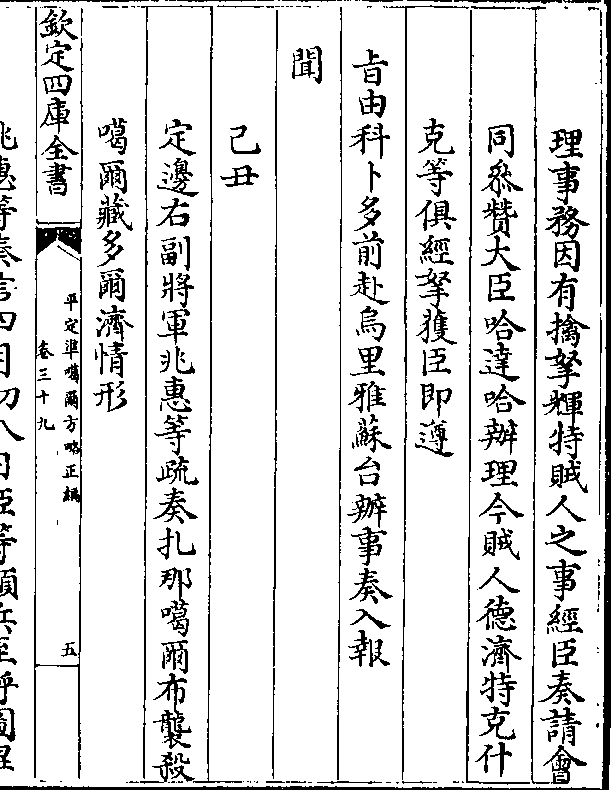 理事務因有擒拏輝特賊人之事經臣奏請會
同叅贊大臣哈達哈辦理今賊人德濟特克什
克等俱經拏獲臣即遵
㫖由科卜多前赴烏里雅蘇台辦事奏入報
聞
己丑
定邊右副將軍兆惠等疏奏扎那噶爾布襲殺
噶爾藏多爾濟情形
欽定四庫全書
平定準噶爾方略正編
卷三十九
五
兆惠等奏言四月初八日臣等領兵至呼圖